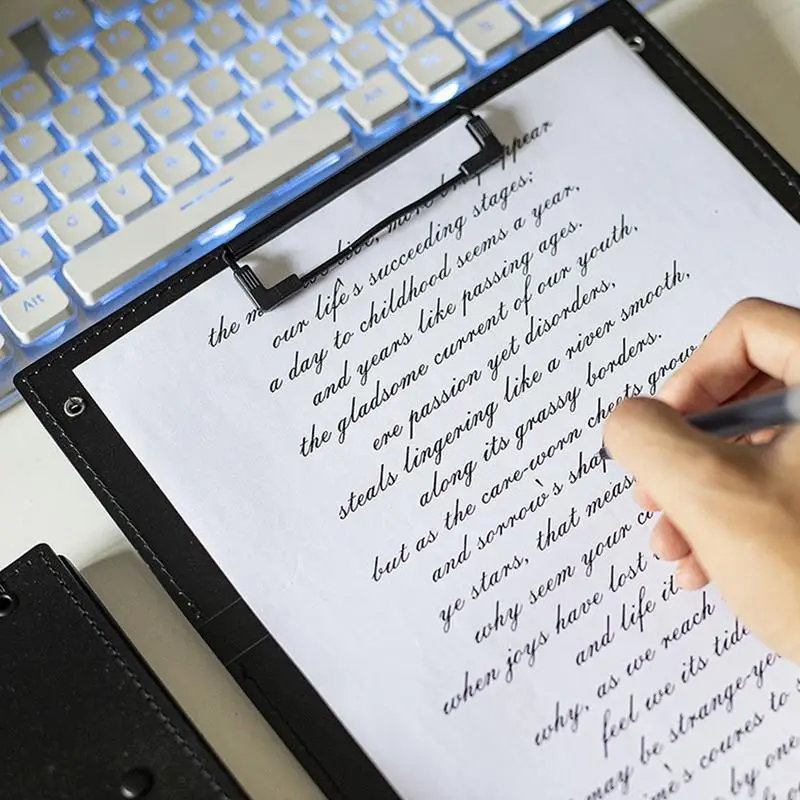 Alt
Alt
C
V
the we live, more appear
our life's succeeding stages;
a day to childhood seems a year,
and years like passing ages.
the gladsome current of our youth,
ere passion yet disorders,
steals lingering like a river smooth,
along its grassy borders.
but as the care-worn cheeks grow
and sorrow's
ye stars, that
why seem your
when joys have lost
and life
why, as we reach
feel we its
may be
coures to
by one